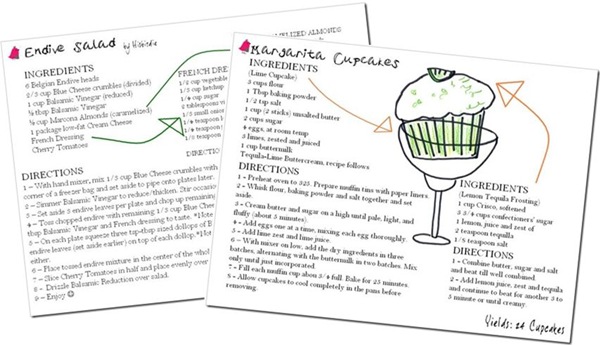 Endive Salad by Victoria
INGREDIENTS
6 Belgian Endive heads
2/3 cup Blue Cheese crumbles (divided)
1 cup Balsamic Vinegar (reduced)
½ cup Marcona Almonds (caramelized)
1 package low-fat Cream Cheese
French Dressing
Cherry Tomatoes
ALMONDS
FRENCH DRE
1/2 cup vegetable
1/3 cup ketchup
2 tablespoons
1/3 small onion
1/4 teaspoon
1/4 teaspoon
1/2 teaspoon
DIRECTIO
DIRECTIONS
1 – With hand mixer, mix 1/3 cup Blue Cheese crumbles with
corner of a freezer bag and set aside to pipe onto plates later.
2 – Simmer Balsamic Vinegar to reduce/thicken. Stir occasio
3 – Set aside 3 endive leaves per plate and chop up remaining
4 – Toss chopped endive with remaining 1/3 cup Blue Chee
tbsp Balsamic Vinegar and French dressing to taste.
5 – On each plate squeeze three tap-sized dollops of B
endive leaves (set aside earlier) on top of each dollop.
either.
6 – Place tossed endive mixture in the center of the whol
7 – Slice Cherry Tomatoes in half and place evenly over
8 – Drizzle Balsamic Reduction over salad.
9 – Enjoy ☺
Margarita Cupcakes
INGREDIENTS
(Lime Cupcake)
3 cups flour
1 Tbsp baking powder
1/2 tsp salt
1 cup (2 sticks) unsalted butter
2 cups sugar
4 eggs, at room temp
3 limes, zested and juiced
1 cup buttermilk
Tequila-Lime Buttercream, recipe follows
DIRECTIONS
1 – Preheat oven to 325. Prepare muffin tins with paper liners.
2 – Whisk flour, baking powder and salt together and set
aside.
3 – Cream butter and sugar on a high until pale, light, and
fluffy (about 5 minutes).
4 – Add eggs one at a time, mixing each egg thoroughly.
5 – Add lime zest and lime juice.
6 – With mixer on low, add the dry ingredients in three
batches, alternating with the buttermilk in two batches. Mix
only until just incorporated.
7 – Fill each muffin cup about 3/4 full. Bake for 25 minutes.
8 – Allow cupcakes to cool completely in the pans before
removing.
INGREDIENTS
(Lemon Tequila Frosting)
1 cup Crisco, softened
2 3/4 cups confectioners' sugar
1 lemon, juice and zest of
2 teaspoon tequila
1/8 teaspoon salt
DIRECTIONS
1 – Combine butter, sugar and salt
and beat till well combined.
2 – Add lemon juice, zest and tequila
and continue to beat for another 3 to
5 minute or until creamy.
Yields: 24 Cupcakes